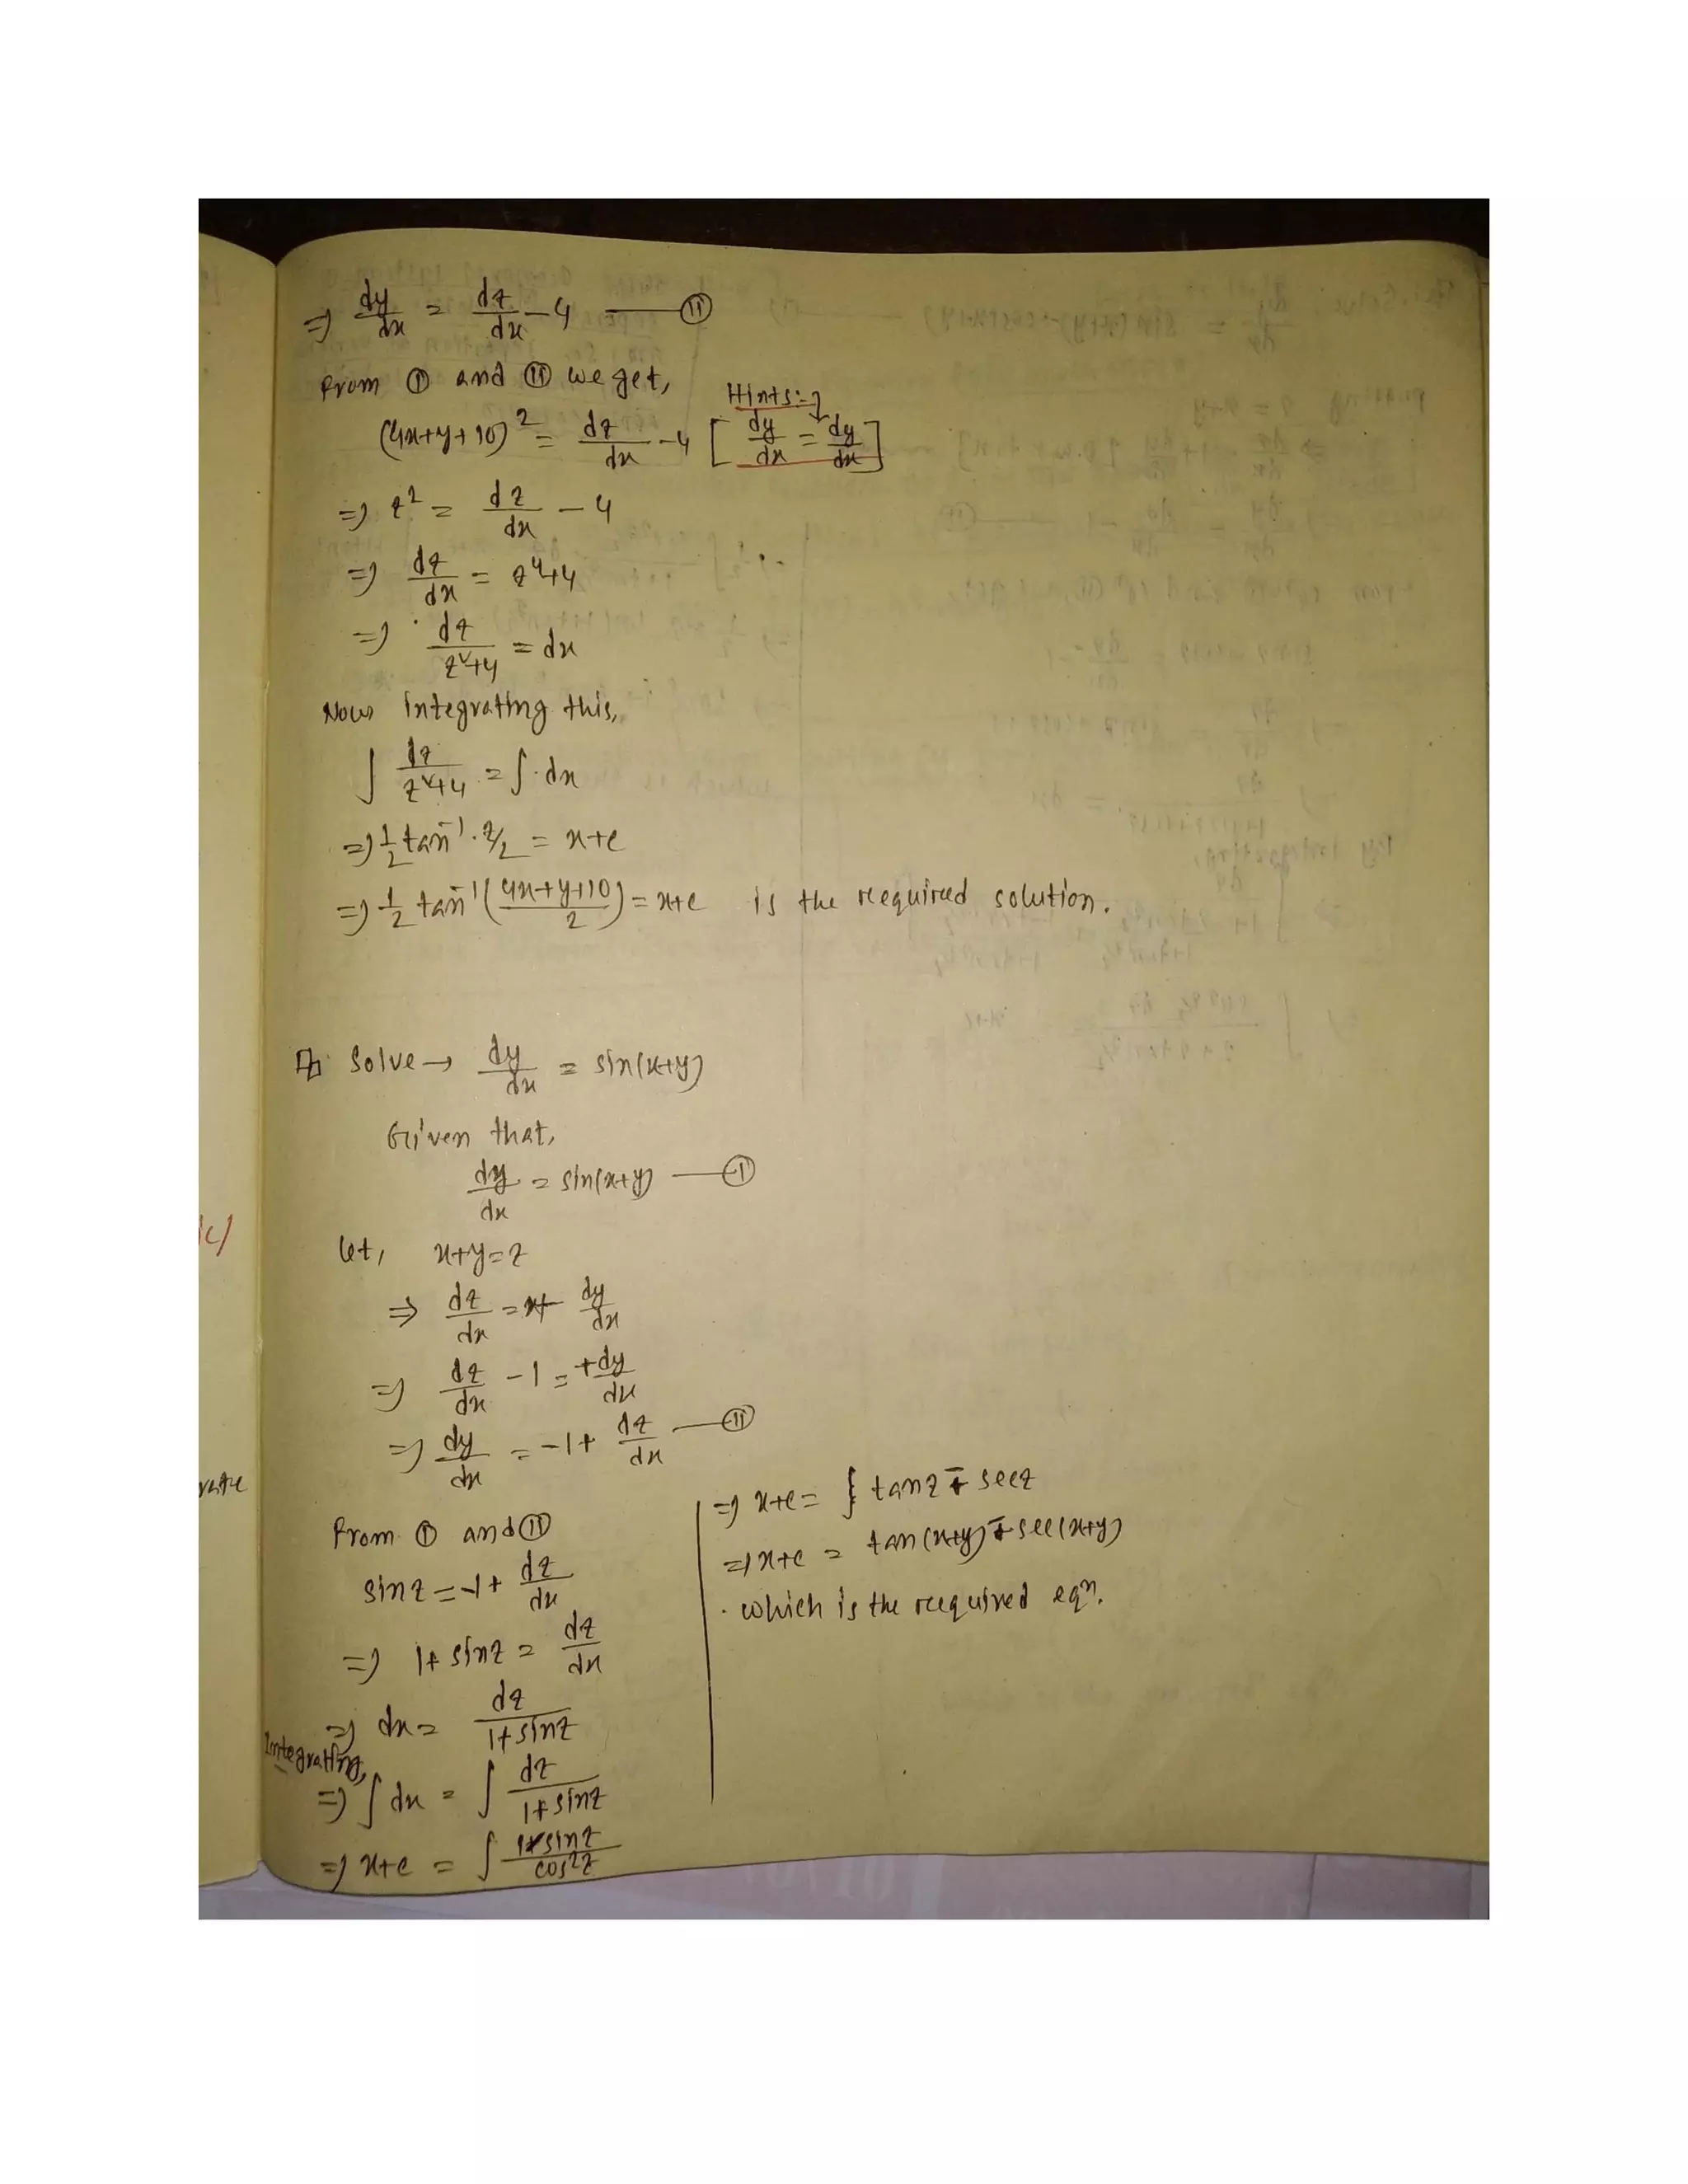 ⇒ dy/dx = dz/dx - 4 —— (II)
From (I) and (II) we get,
Hints:-
(4x+y+10)² = dz/dx - 4 [dy/dx = dy/dx]
⇒ z² = dz/dx - 4
⇒ dz/dx = z²+4
⇒ dz/z²+4 = dx
Now integrating this,
∫ dz/z²+4 = ∫ dx
⇒ 1/2 tan⁻¹ z/2 = x+c
⇒ 1/2 tan⁻¹(4x+y+10/2) = x+c is the required solution.
Solve → dy/dx = sin(x+y)
Given that,
dy/dx = sin(x+y) —— (I)
let, x+y=z
⇒ dz/dx = + dy/dx
⇒ dz/dx - 1 = + dy/dx
⇒ dy/dx = -1 + dz/dx —— (II)
From (I) and (II)
sinz = -1 + dz/dx
⇒ 1 + sinz = dz/dx
⇒ dx = dz/1+sinz
Integrating,
⇒ ∫ dx = ∫ dz/1+sinz
⇒ x+c = ∫ sinz/cos²z
⇒ x+c = tanz ∓ secz
⇒ x+c = tan(x+y) ∓ sec(x+y)
which is the required eqn.